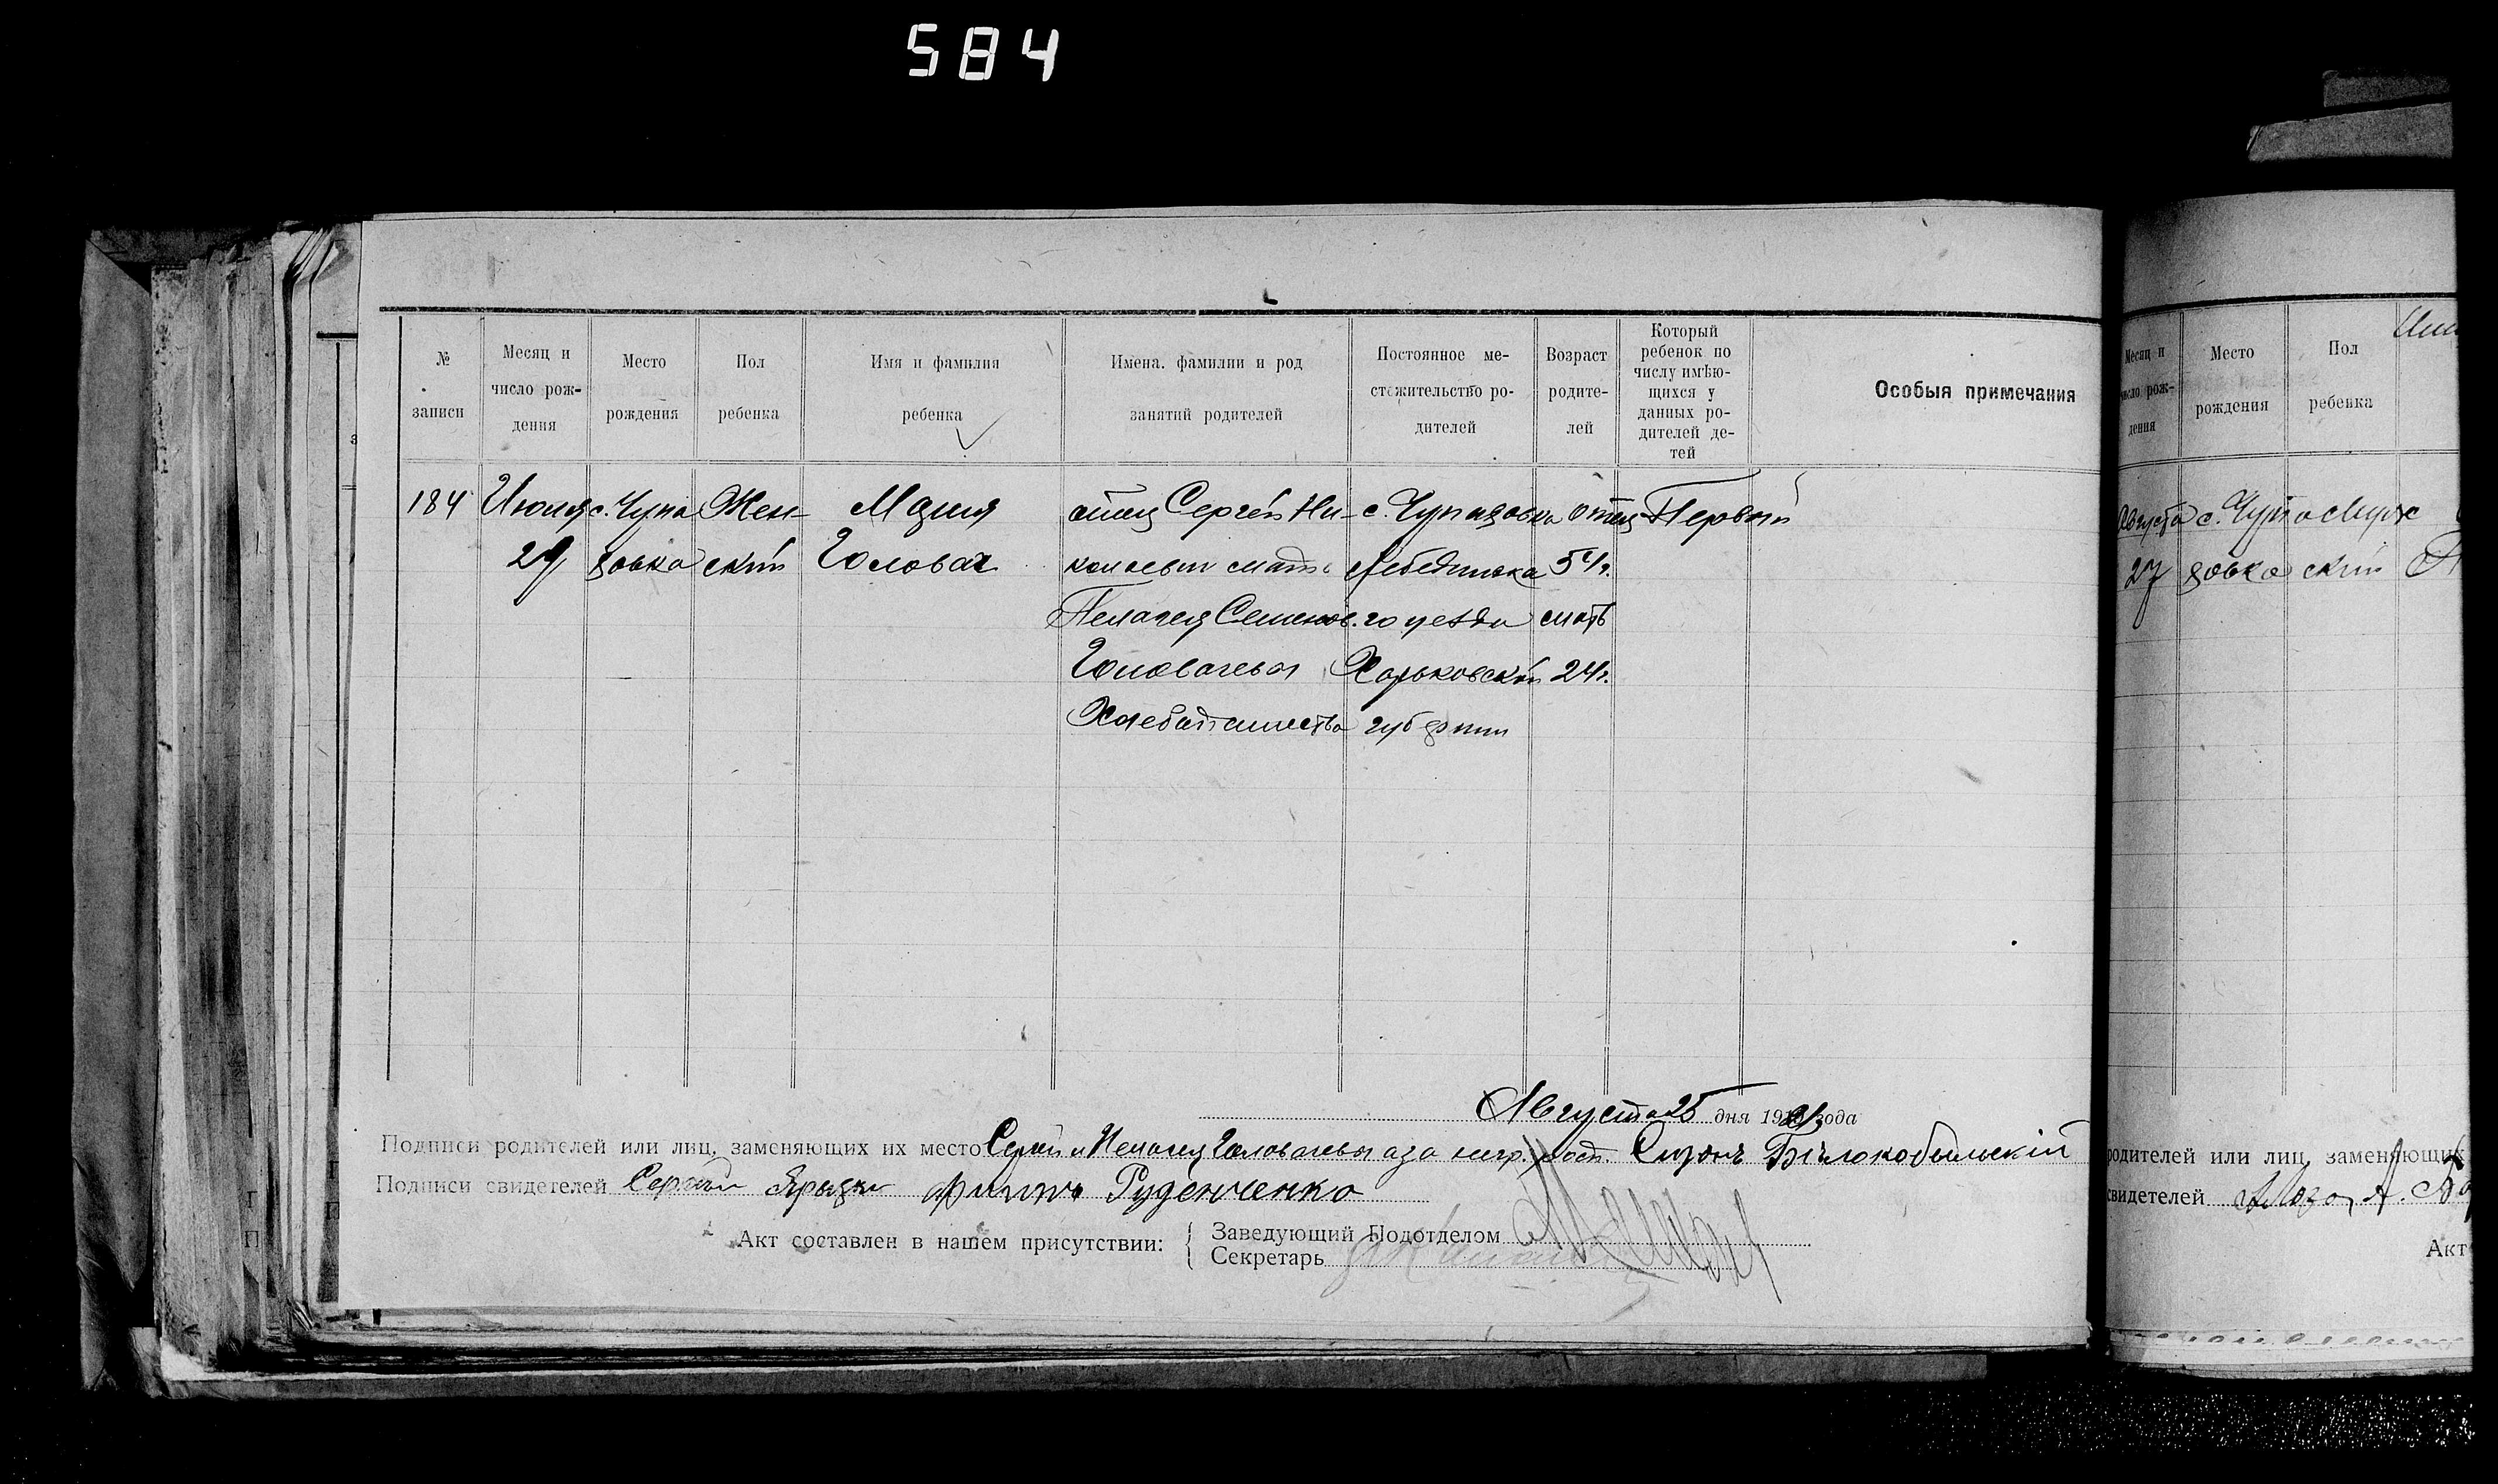 584
№ записи
Месяц и число рождения
Место рождения
Пол ребенка
Имя и фамилия ребенка
Имена. фамилии и род занятий родителей
Постоянное местожительство родителей
Возраст родителей
Который ребенок по числу имѣющихся у данных родителей детей
Особыя примечания
184 Июля с. Чупа Жен- Мария отец Сергей Ни- с. Чупаховка отец Первый
29 ховка ский Головач колаевич мать Лебединска 54г.
Пелагея Семенов. го уезда мать
Головачевы Харьковской 24г.
Хлебопашества губернии
Августа 25 дня 1921 года
Подписи родителей или лиц, заменяющих их место Сергей и Пелагея Головачевы а за негр. расп. Бѣлокобыльскій
Подписи свидетелей Сергей Филипп Руденченко
Акт составлен в нашем присутствии:
Заведующий Подотделом
Секретарь
Месяц и число рождения
Место рождения
Пол ребенка
Августа с. Чупа Муж
27 ховка ский
родителей или лиц, заменяющих
свидетелей
Акт